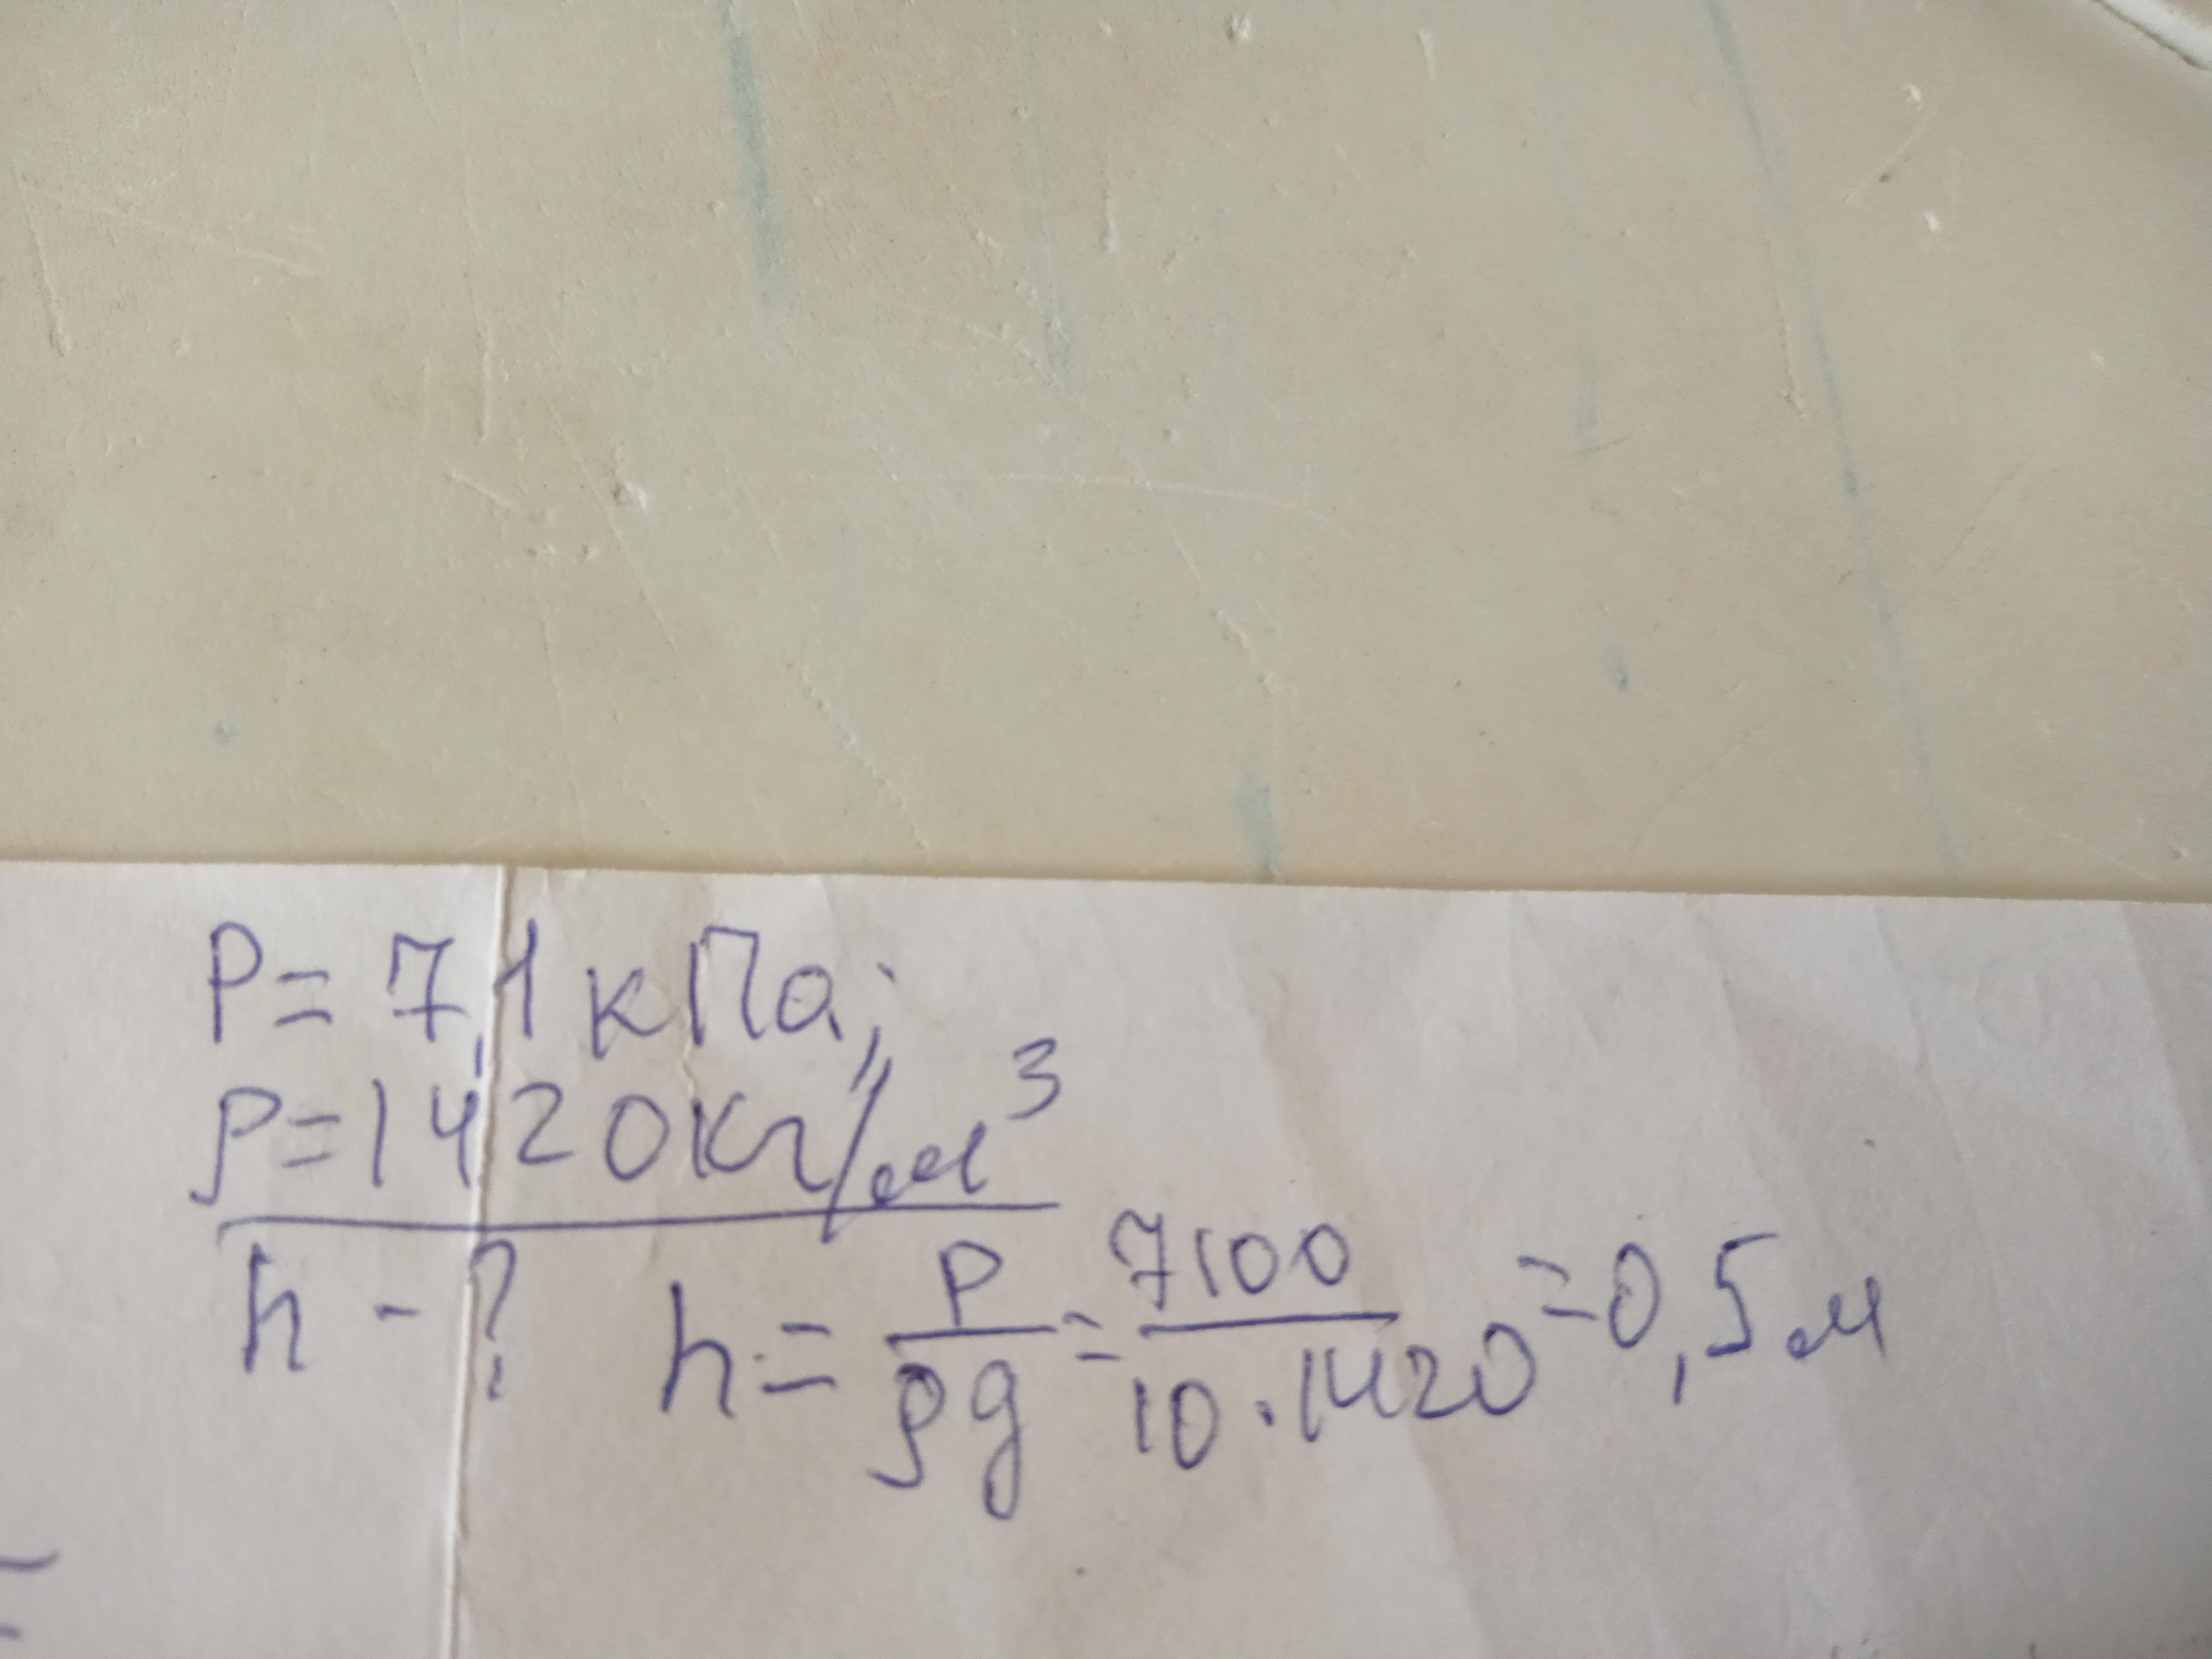 P = 7,1 кПа;
ρ = 1420 кг/м³
h - ? h = P/ρg = 7100/10·1420 = 0,5 м